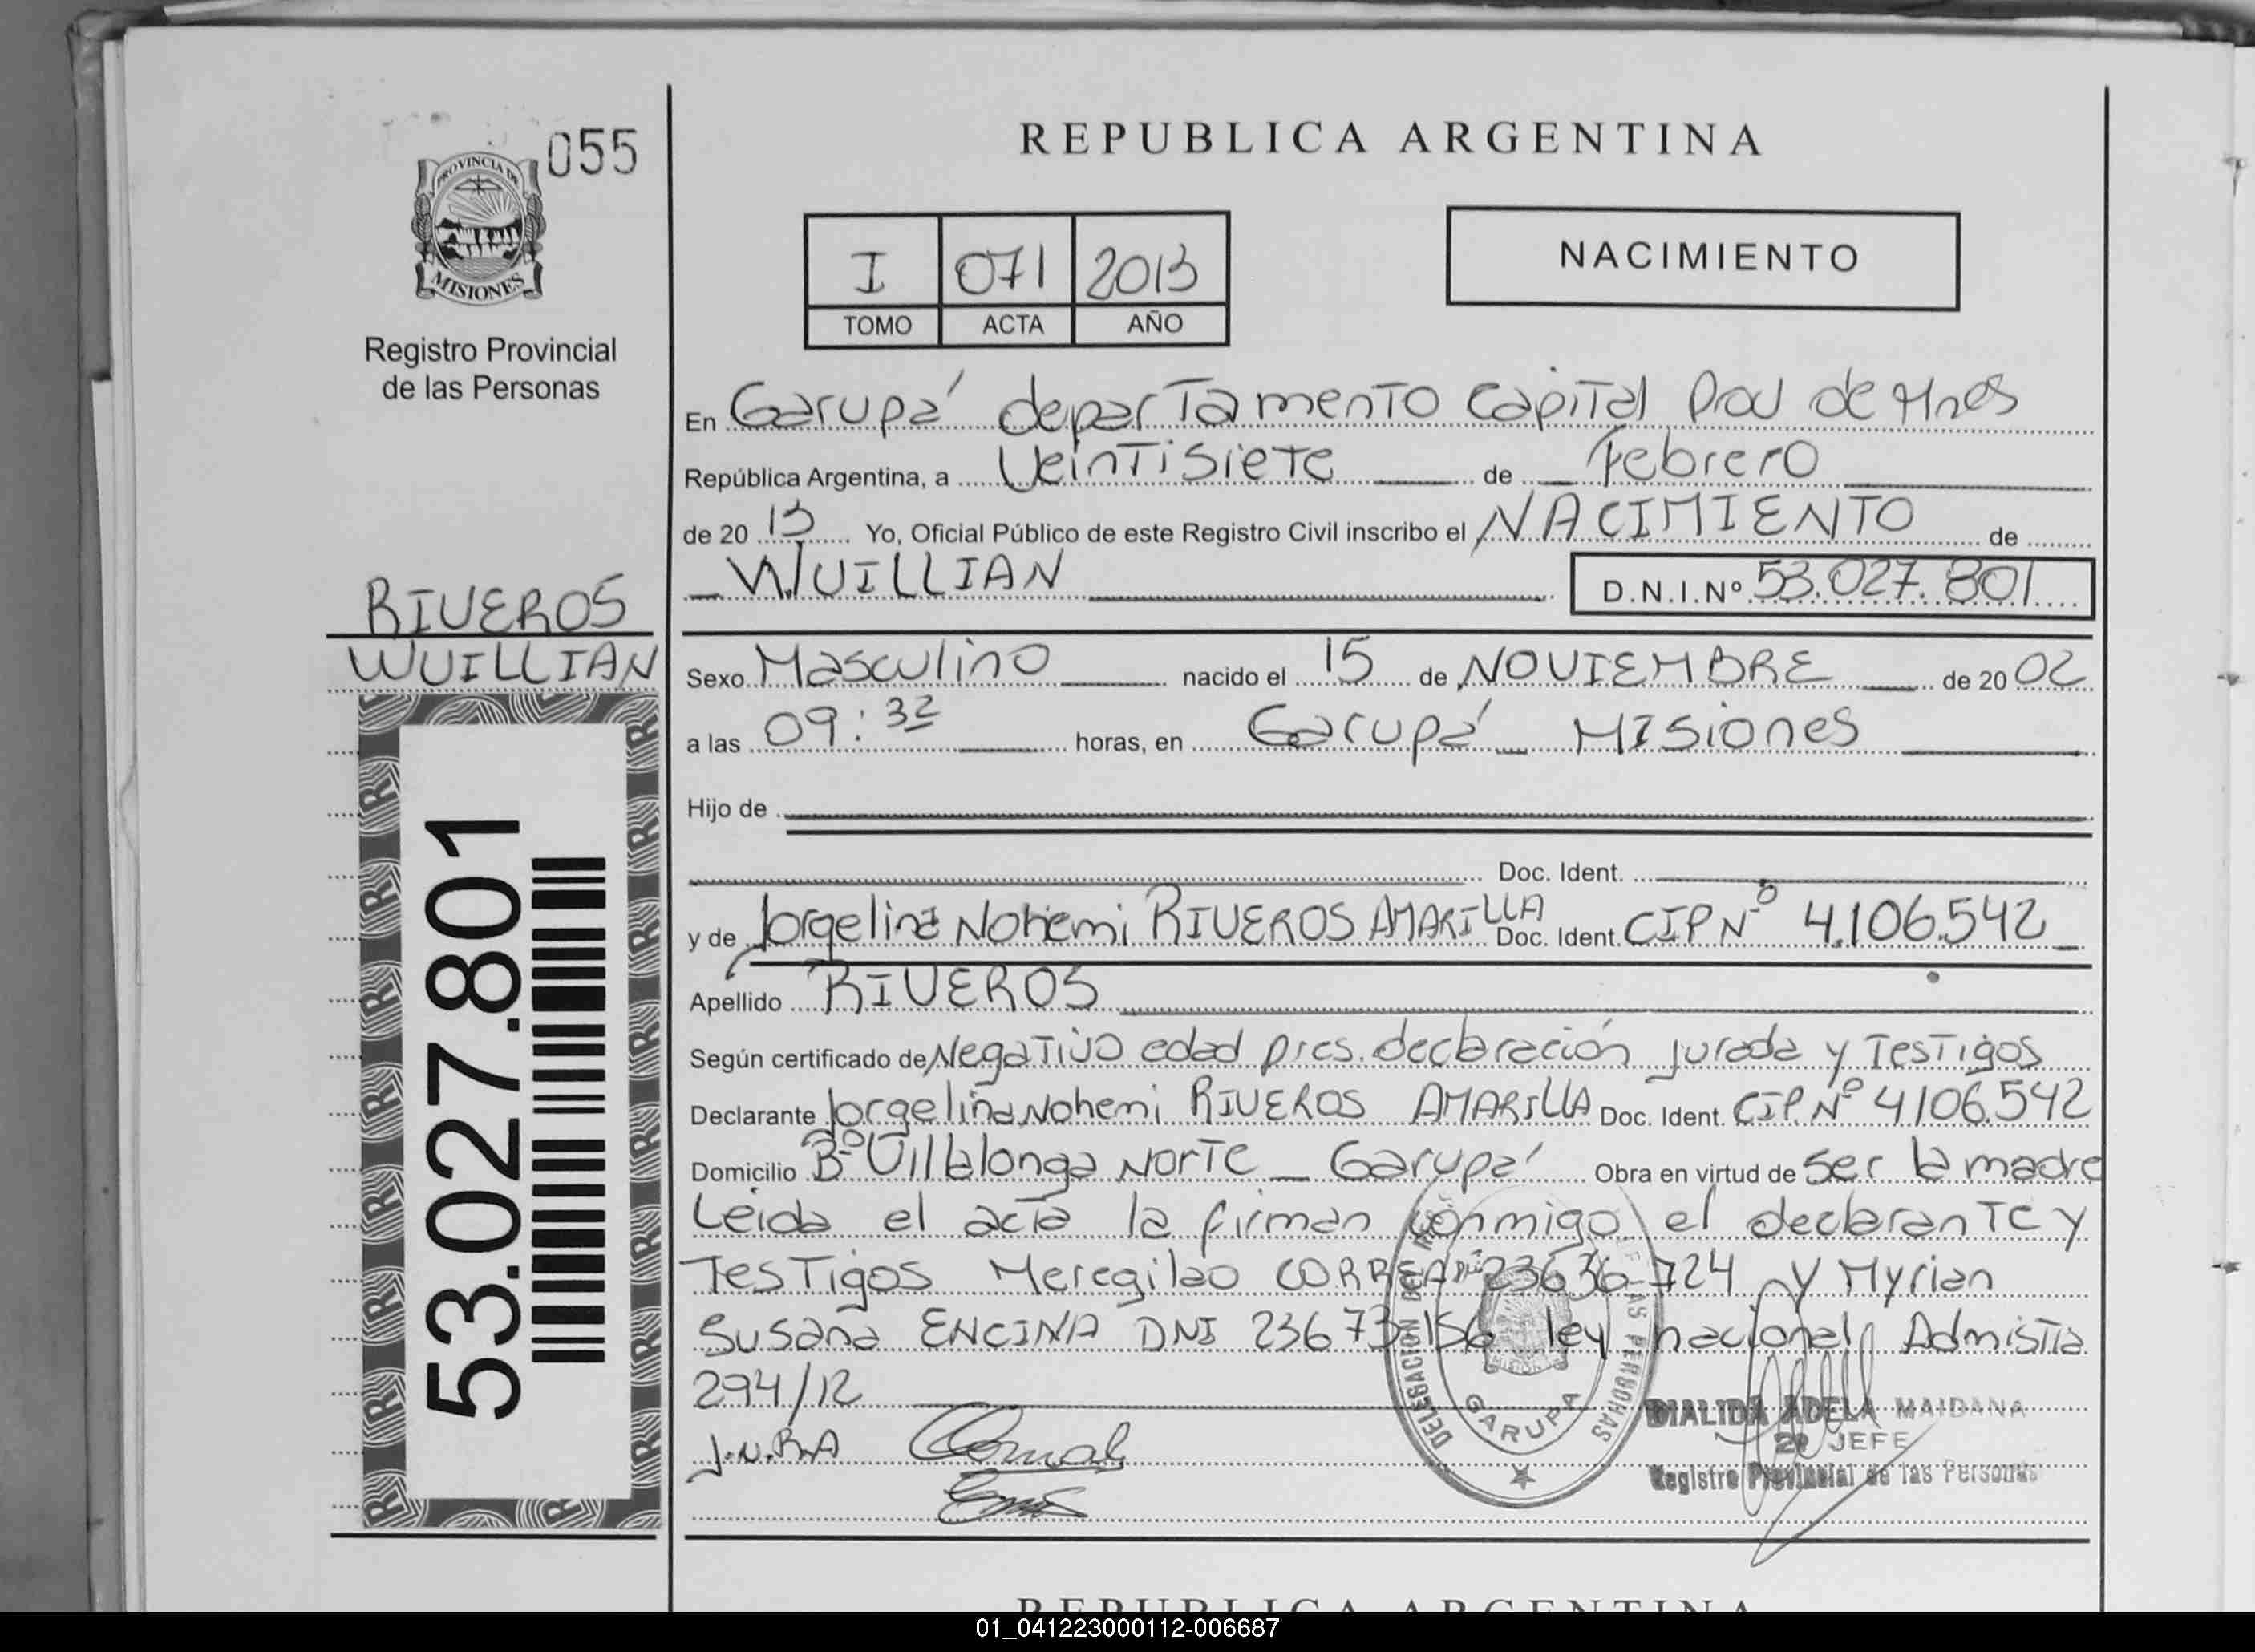 055
PROVINCIA DE
MISIONES
Registro Provincial
de las Personas
RIVEROS
WUILLIAN
53.027.801
REPUBLICA ARGENTINA
I 071 2013
TOMO ACTA AÑO
NACIMIENTO
En Garupá departamento Capital Prov de Mnes
República Argentina, a Veintisiete de Febrero
de 20 13 Yo, Oficial Público de este Registro Civil inscribo el NACIMIENTO de
WUILLIAN D.N.I.Nº 53.027.801
Sexo Masculino nacido el 15 de NOVIEMBRE de 20 02
a las 09:32 horas, en Garupá Misiones
Hijo de
Doc. Ident.
y de Jorgelina Nohemi RIVEROS AMARILLA Doc. Ident. CIP Nº 4.106.542
Apellido RIVEROS
Según certificado de Negativo edad pres. declaración jurada y Testigos
Declarante Jorgelina Nohemi RIVEROS AMARILLA Doc. Ident. CIP. Nº 4106.542
Domicilio Bº Villalonga Norte Garupá Obra en virtud de ser la madre
Leida el acta la firman conmigo el declarante y
Testigos Meregildo CORREA DNI 23636724 y Myrian
Susana ENCINA DNI 23673156 ley nacional Admistia
294/12
J.N.R.A
DELEGACION DEL REG. DE LAS PERSONAS
GARUPA
DIALIDA ADELA MAIDANA
2º JEFE
Registro Provincial de las Personas
REPUBLICA ARGENTINA
01_041223000112-006687